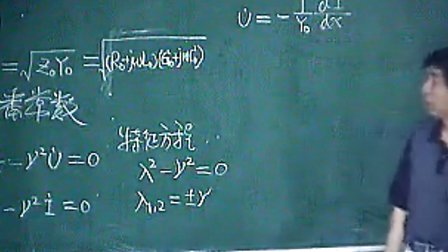 U̇ = - 1/Y₀ dİ/dx
= √Z₀Y₀ = √(R₀+jωL₀)(G₀+jωC₀)
常数
- γ²U̇ = 0
- γ²İ = 0
特征方程
λ² - γ² = 0
λ₁,₂ = ±γ